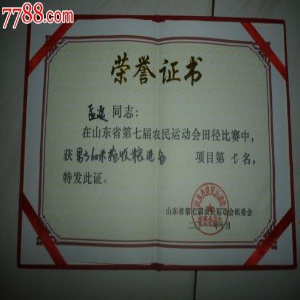 7788.com
荣誉证书
同志:
在山东省第七届农民运动会田径比赛中,
获男子60米抢收粮进仓 项目第七名,
特发此证。
山东省第七届农民运动会组委会